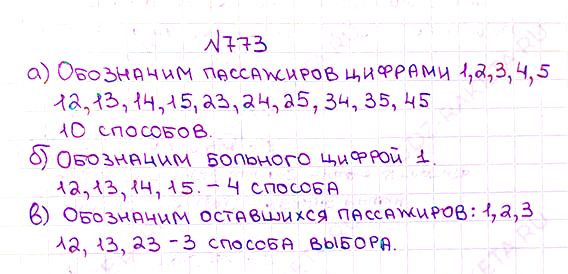 №773
а) Обозначим пассажиров цифрами 1,2,3,4,5
12, 13, 14, 15, 23, 24, 25, 34, 35, 45
10 способов.
б) Обозначим больного цифрой 1.
12, 13, 14, 15. – 4 способа
в) Обозначим оставшихся пассажиров: 1,2,3
12, 13, 23 – 3 способа выбора.